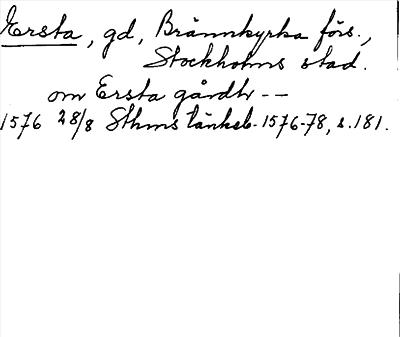 Ersta, gd, Brännkyrka förs.,
Stockholms stad.
om Ersta gårdtr --
1576 28/8 Sthms tänkeb. 1576-78, s. 181.